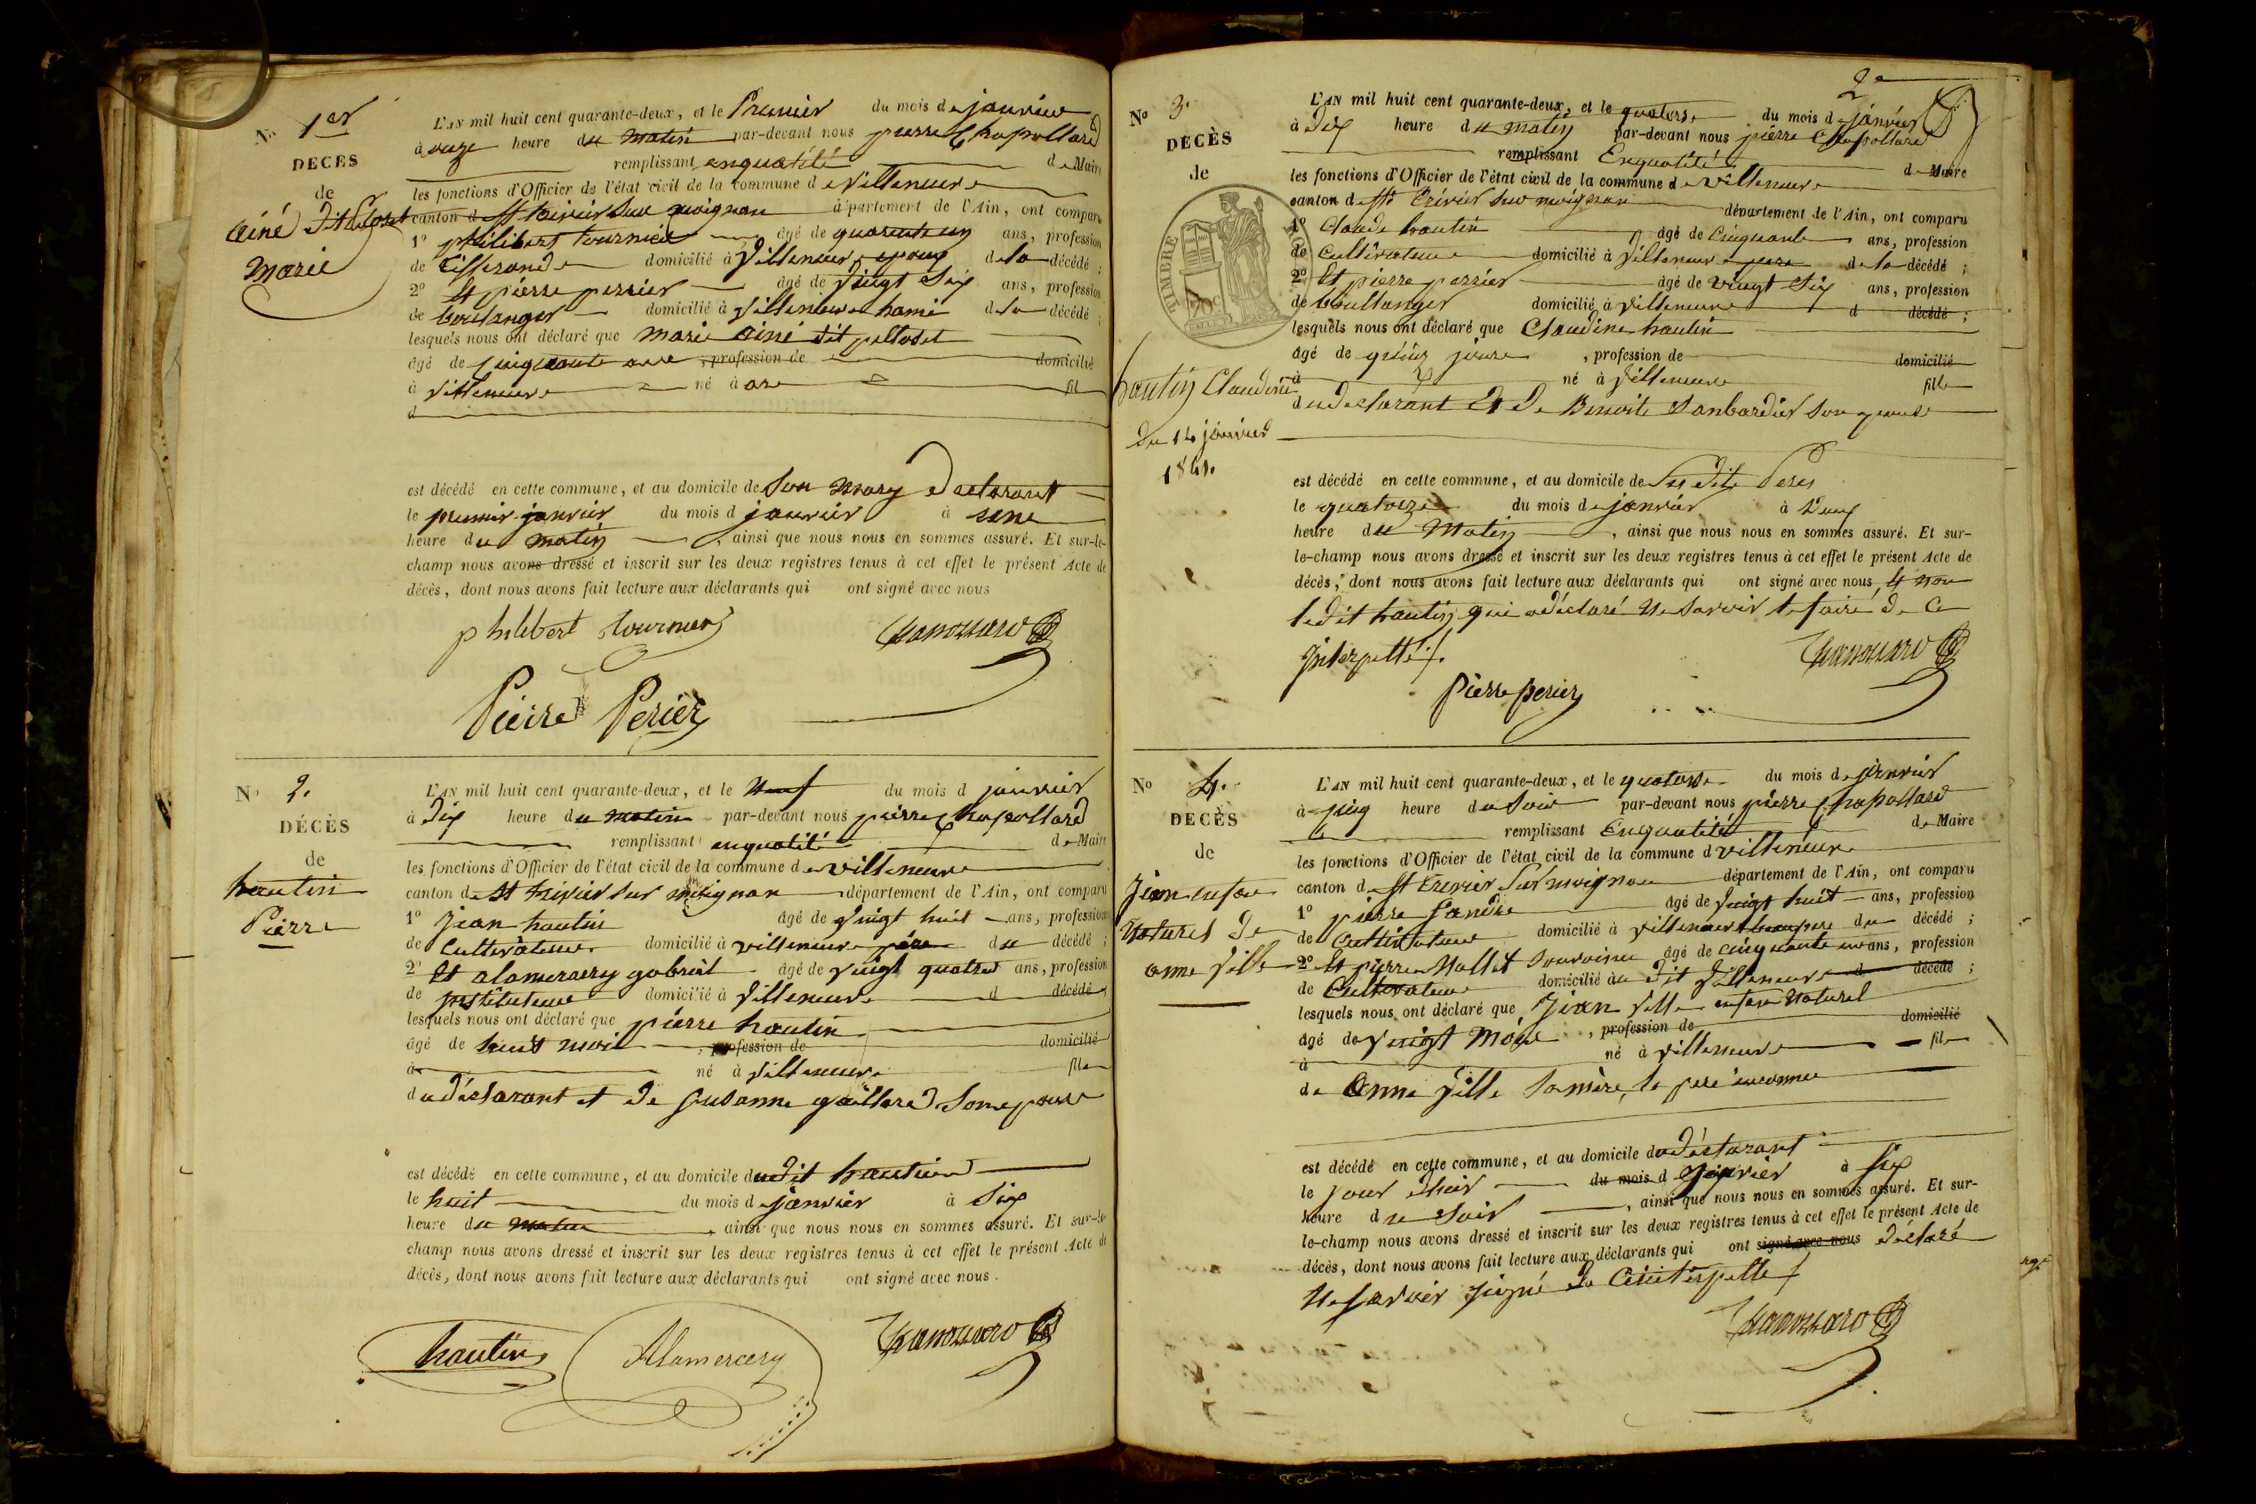 N° 1er
DECES
de
ainé dit
Marie
L'AN mil huit cent quarante-deux, et le Premier du mois de janvier
à onze heure du matin par-devant nous pierre Chapollard
remplissant enqualité de Maire
les fonctions d'Officier de l'état civil de la commune de villeneuve
canton de St trivier sur moignan département de l'Ain, ont comparu
1° philibert tournier âgé de quarante un ans, profession
de tisserand domicilié à villeneuve epoux de la décédé ;
2° Et pierre perrier âgé de vingt Six ans, profession
de boulanger domicilié à villeneuve hami de la décédé ;
lesquels nous ont déclaré que marie ainé dit
âgé de cinquante ans, profession de domicilié
à villeneuve né à ars fil
d
est décédé en cette commune, et au domicile de Son mary declarant
le premier janvier du mois d janvier à une
heure du matin, ainsi que nous nous en sommes assuré. Et sur-le-
champ nous avons dressé et inscrit sur les deux registres tenus à cet effet le présent Acte de
décès, dont nous avons fait lecture aux déclarants qui ont signé avec nous
philibert tournier
Pieire Perier
N° 2.
DÉCÈS
de
hautin
Pierre
L'AN mil huit cent quarante-deux, et le Neuf du mois d janvier
à Dix heure du matin par-devant nous pierre Chapollard
remplissant enqualité de Maire
les fonctions d'Officier de l'état civil de la commune de villeneuve
canton de St trivier sur moignan département de l'Ain, ont comparu
1° jean hautin âgé de vingt huit ans, profession
de Cultivateur domicilié à villeneuve père du décédé ;
2° Et alamercery gabriel âgé de vingt quatre ans, profession
de instituteur domicilié à villeneuve d décédé ;
lesquels nous ont déclaré que pierre hautin
âgé de huit mois, profession de domicilié
à né à villeneuve fils
du déclarant et de Susanne gaillard Son epouse
est décédé en cette commune, et au domicile dudit hautin
le huit du mois de janvier à Six
heure du matin, ainsi que nous nous en sommes assuré. Et sur-le-
champ nous avons dressé et inscrit sur les deux registres tenus à cet effet le présent Acte de
décès, dont nous avons fait lecture aux déclarants qui ont signé avec nous.
hautin
Alamercery
2e
N° 3.
DÉCÈS
de
TIMBRE
hautin Claudine
Du 14 janvier
L'AN mil huit cent quarante-deux, et le quatorze du mois de janvier
à Dix heure du matin par-devant nous pierre Chapollard
remplissant Enqualité de Maire
les fonctions d'Officier de l'état civil de la commune de villeneuve
canton de St trivier sur moignan département de l'Ain, ont comparu
1° Claude hautin âgé de Cinquante ans, profession
de Cultivateur domicilié à villeneuve pere de la décédé ;
2° Et pierre perrier âgé de vingt Six ans, profession
de boullanger domicilié à villeneuve d décédé ;
lesquels nous ont déclaré que Claudine hautin
âgé de jours, profession de domicilié
à né à villeneuve fille
du declarant Et De Benoite Son epouse
est décédé en cette commune, et au domicile de Sudit Peres
le quatorze du mois de janvier à Deux
heure du Matin, ainsi que nous nous en sommes assuré. Et sur-
le-champ nous avons dressé et inscrit sur les deux registres tenus à cet effet le présent Acte de
décès, dont nous avons fait lecture aux déclarants qui ont signé avec nous, Et non
ledit hautin qui adéclaré Ne Savoir le faire De Ce
Interpellé
Pierre perier
N° 4.
DECÈS
de
Jean enfan
Naturel De
anne Fille
L'AN mil huit cent quarante-deux, et le quatorze du mois de janvier
à cinq heure du Soir par-devant nous pierre Chapollard
remplissant Enqualité de Maire
les fonctions d'Officier de l'état civil de la commune d villeneuve
canton de St trivier Sur moignan département de l'Ain, ont comparu
1° pierre âgé de vingt huit ans, profession
de Cultivateur domicilié à villeneuve beaupere du décédé ;
2° Et pierre Nallet âgé de cinquante un ans, profession
de Cultivateur domicilié au dit villeneuve d décédé ;
lesquels nous ont déclaré que Jean enfan Naturel
âgé de vingt Mois, profession de domicilié
à né à villeneuve fils
de Anne Sa mère, le pere inconnu
est décédé en cette commune, et au domicile du déclarant
le jour du mois d janvier à Six
heure du Soir, ainsi que nous nous en sommes assuré. Et sur-
le-champ nous avons dressé et inscrit sur les deux registres tenus à cet effet le présent Acte de
décès, dont nous avons fait lecture aux déclarants qui ont signé avec nous déclaré
Ne Savoir signé de Ce interpellé